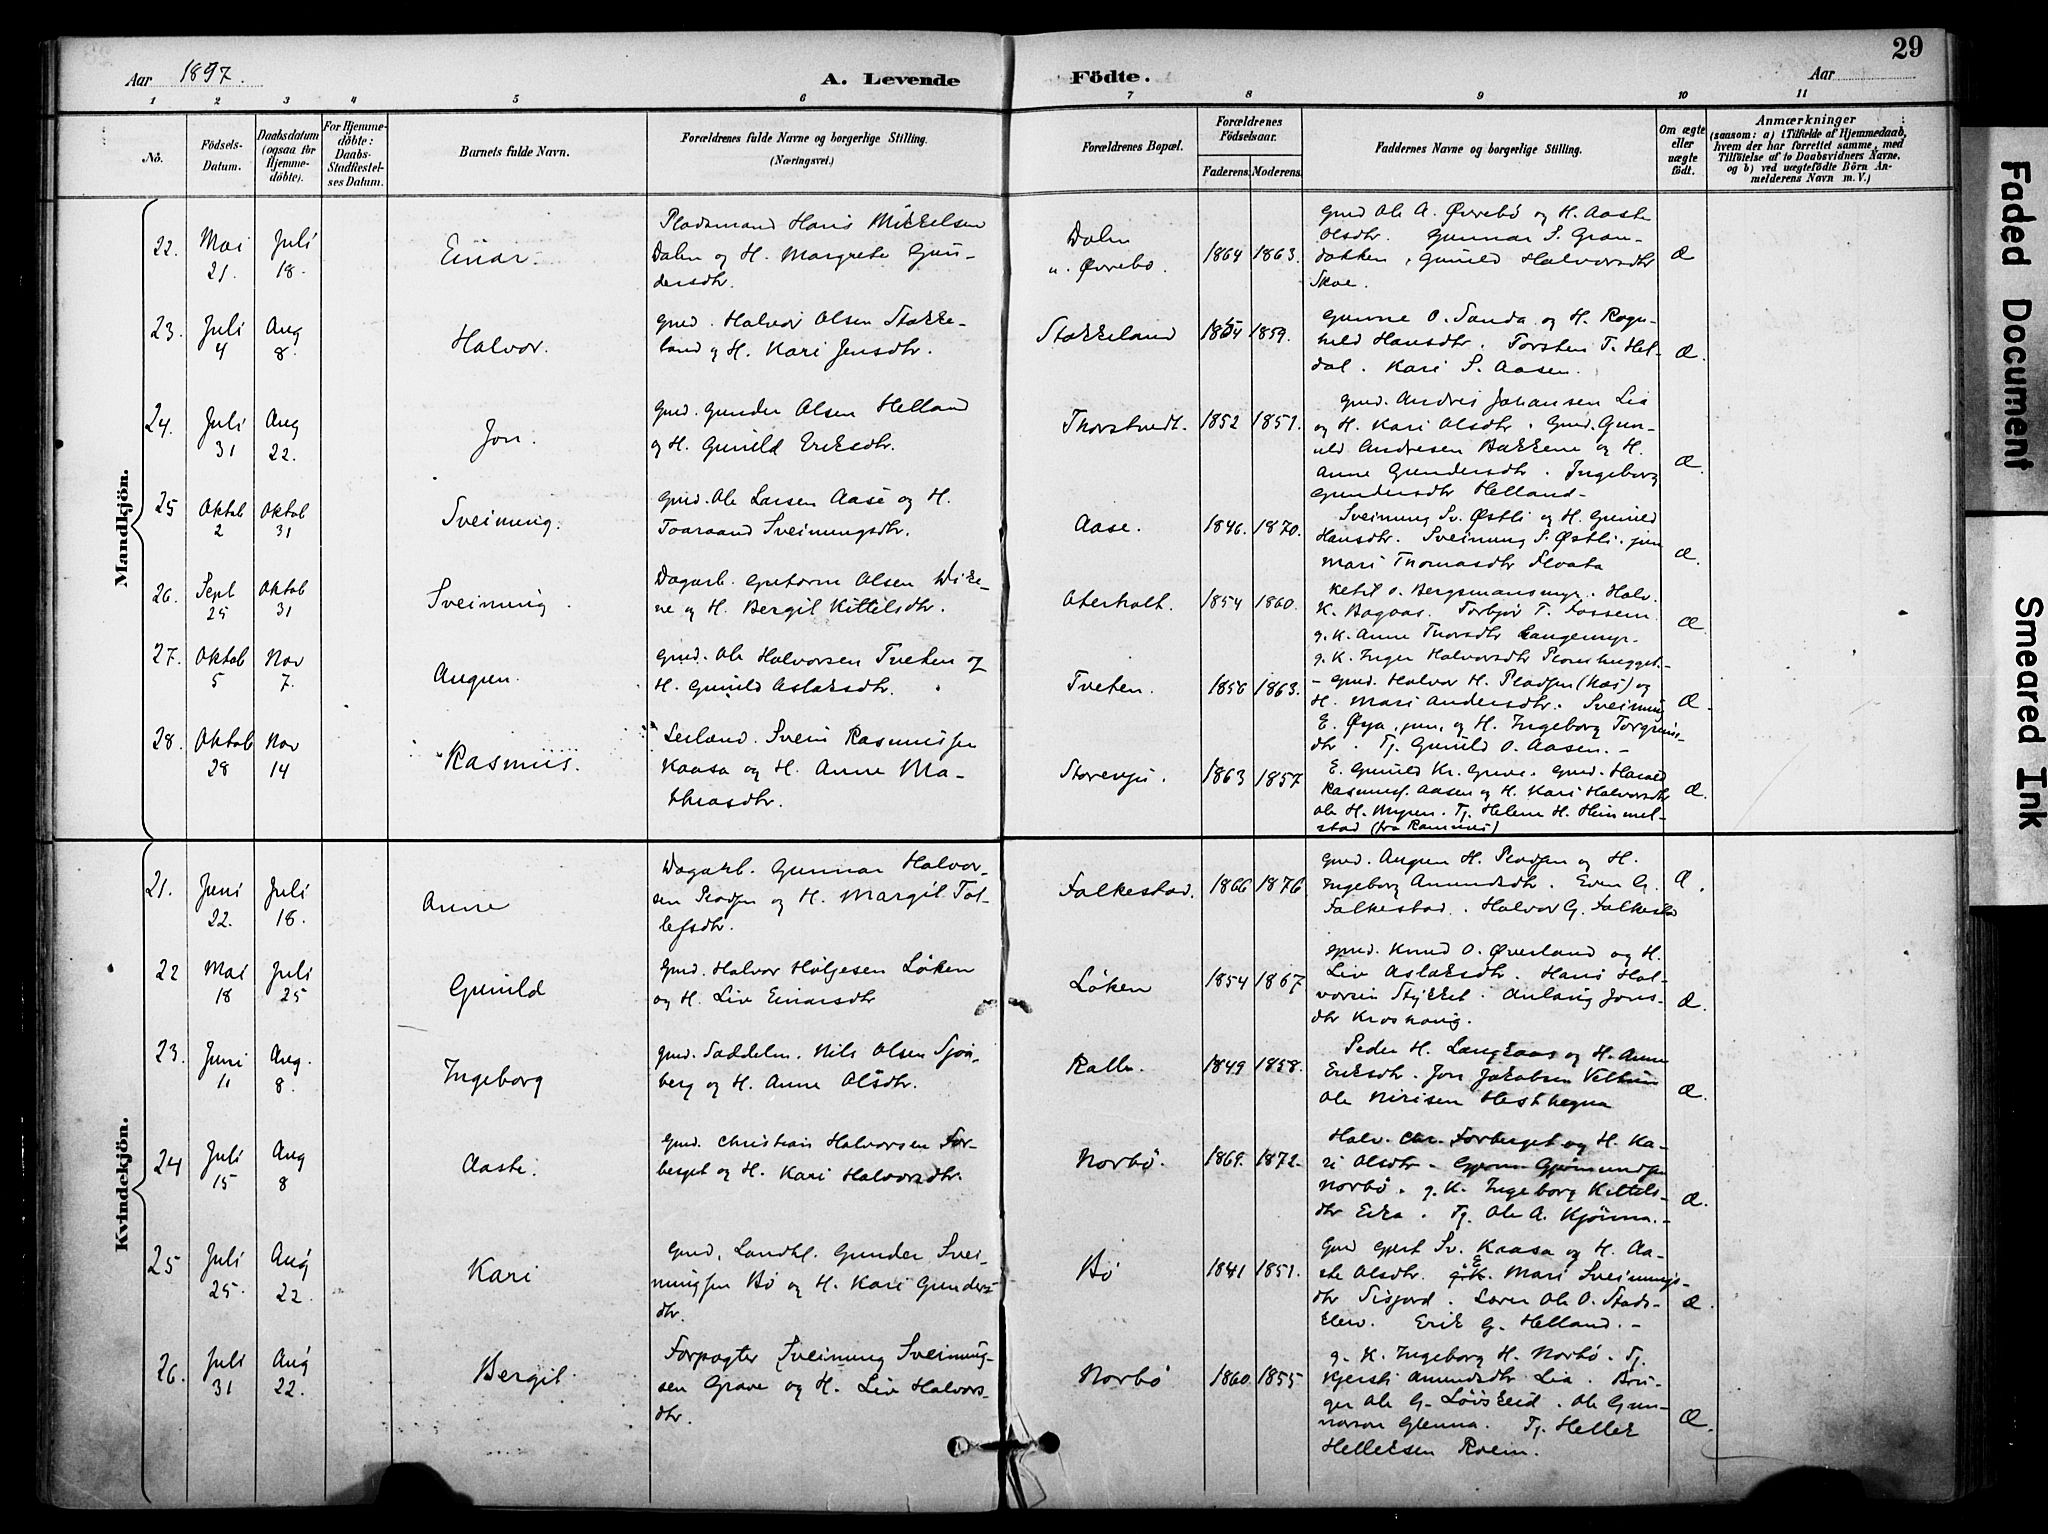 29
Aar 1897.
A. Levende Födte.
Aar
1 2 3 4 5 6 7 8 9 10 11
No.
Födsels-Datum.
Daabsdatum (ogsaa for Hjemme-döbte).
For Hjemme-döbte: Daabs-Stadfæstel-ses Datum.
Barnets fulde Navn.
Forældrenes fulde Navne og borgerlige Stilling.
(Næringsvei.)
Forældrenes Bopæl.
Forældrenes Födselsaar.
Faderens. Moderens.
Faddernes Navne og borgerlige Stilling.
Om ægte eller uægte födt.
Anmærkninger
(saasom: a) i Tilfælde af Hjemmedaab,
hvem der har forrettet samme, med
Tilföielse af to Daabsvidners Navne,
og b) ved uægtefödte Börn An-
melderens Navn m. V.)
Mandkjön.
22. Mai 21. Juli 18. Einar.
Pladsmand Hans Mikkelsen
Dalen og H. Margrete Gun-
dersdtr.
Dalen
u. Øvrebø.
1864 1863.
Gmd Ole A. Øvrebö og H. Aaste
Olsdtr. Gunnar S. Gran-
bakken, Gunild Halvorsdtr
Skoe.
Æ
23. Juli 4 Aug 8. Halvor.
Gmd. Halvor Olsen Stakke-
land og H. Kari Jensdtr.
Stakkeland 1854 1859.
Gunne O. Sanda og H. Ragn-
hild Hansdtr. Torsten T. Hel-
dal. Kari S. Aasen.
Æ.
24. Juli 31 Aug 22. Jon.
Gmd. Gunder Olsen Helland
og H. Gunild Eriksdtr.
Thorstvedt. 1852 1851.
Gmd. Andres Johansen Lia
og H. Kari Olsdtr. Gmd. Gun-
uld Andresen Bakkene og H.
Anne Gundersdtr. Ingeborg
Gundersdtr Helland-
Æ.
25 Oktob 2 Oktob 31 Sveinung.
Gmd. Ole Larsen Aase og H.
Taaraand Sveinungsdtr.
Aase. 1846. 1870.
Sveinung Sv. Østli og H. Gunild
Hansdtr. Sveinung S. Østli. jun
Mari Thomasdtr Flaata
Æ
26. Sept 25 Oktob 31 Sveinung.
Dagarb. Guttorm Olsen Vike-
ne og H. Bergit Kittilsdtr.
Oterholt. 1854 1860.
Ketil O. Bergsmansmyr. Halv.
K. Bagaas. Torbjør T. Fossem
g. K. Anne Thorsdtr Langemyr.
g. K. Inger Halvorsdtr Plomhugget.
Æ.
27. Oktob 5 Nov 7. Augun.
Gmd. Ole Halvorsen Tveten og
H. Gunild Aslaksdtr.
Tveten. 1856 1863.
- Gmd. Halvor H. Pladsen (Kås) og
H. Mari Andersdtr. Sveinung
E. Øya, jun. og H. Ingeborg Torgrims-
dtr. Tj. Gunild O. Aasen. -
Æ.
28. Oktob 28 Nov 14 Rasmus.
Leilænd. Svein Rasmussen
Kaasa og H. Anne Ma-
thiasdtr.
1863 1857
E. Gunild Kr. Grave. Gmd. Harald
Rasmuss. Aasen og H. Kari Halvorsdtr
Ole H. Myren. Tj. Helene H. Himmel-
stad (fra Ramnes)
Æ.
Kvindekjön.
21. Juni 22. Juli 18. Anne
Dagarb. Gunnar Halvor-
sen Pladsen og H. Margit Tol-
lefsdtr.
Falkestad. 1866 1876
Gmd. Augun H. Pladsen og H.
Ingeborg Amundsdtr. Even G.
Falkestad. Halvor G. Falkestad
Æ.
22 Mai 18 Juli 25 Gunild
Gmd. Halvor Holjesen Løken
og H. Liv Einarsdtr
Løken 1854 1867
Gmd. Knud O. Øverland og H.
Liv Aslaksdtr. Hans Hal-
vorsen Stykket. Anlaug Jons-
dtr Kroshaug.
Æ.
23. Juni 11 Aug. 8. Ingeborg
Gmd. Saddelm. Nils Olsen Sjøn-
berg og H. Anne Olsdtr.
1849 1858.
Peder H. Langkaas og H. Anne
Eriksdtr. Jon Jakobsen
Ole Nirisen Hesthegna
Æ.
24 Juli 15 Aug 8 Aaste.
Gmd. Christian Halvorsen For-
berget og H. Kari Halvorsdtr.
Norbö. 1869. 1872.
Halv. Chr. Forberget og H. Ka-
ri Olsdtr - Gjermundsen
Norbö. g. K. Ingeborg Kittils-
dtr Eika. Tj. Ole A. Kjönna.-
Æ.
25 Juli 25. Aug 22. Kari
Gmd, Landhl. Gunder Svei-
nungsen Bö og H. Kari Gunders-
dtr.
Bö 1841 1851.
Gmd Gjert Sv. Kaasa og H. Aa-
ste Olsdtr. E. Mari Sveinungs-
dtr Sisjord. Lærer Ole O. Stads-
klev. Erik G. Helland. -
Æ.
26. Juli 31 Aug 22. Bergit.
Forpagter Sveinung Sveinung-
sen Grave og H. Liv Halvors-
dtr.
Norbö 1860. 1855
g. K. Ingeborg H. Norbö. Tj.
Kjersti Amundsdtr Lia. Bru-
ger Ole G. Ole Gun-
narson Glenna. Tj. Hellek
Helleksen Roein.
Æ.
Faded Document
Smeared Ink